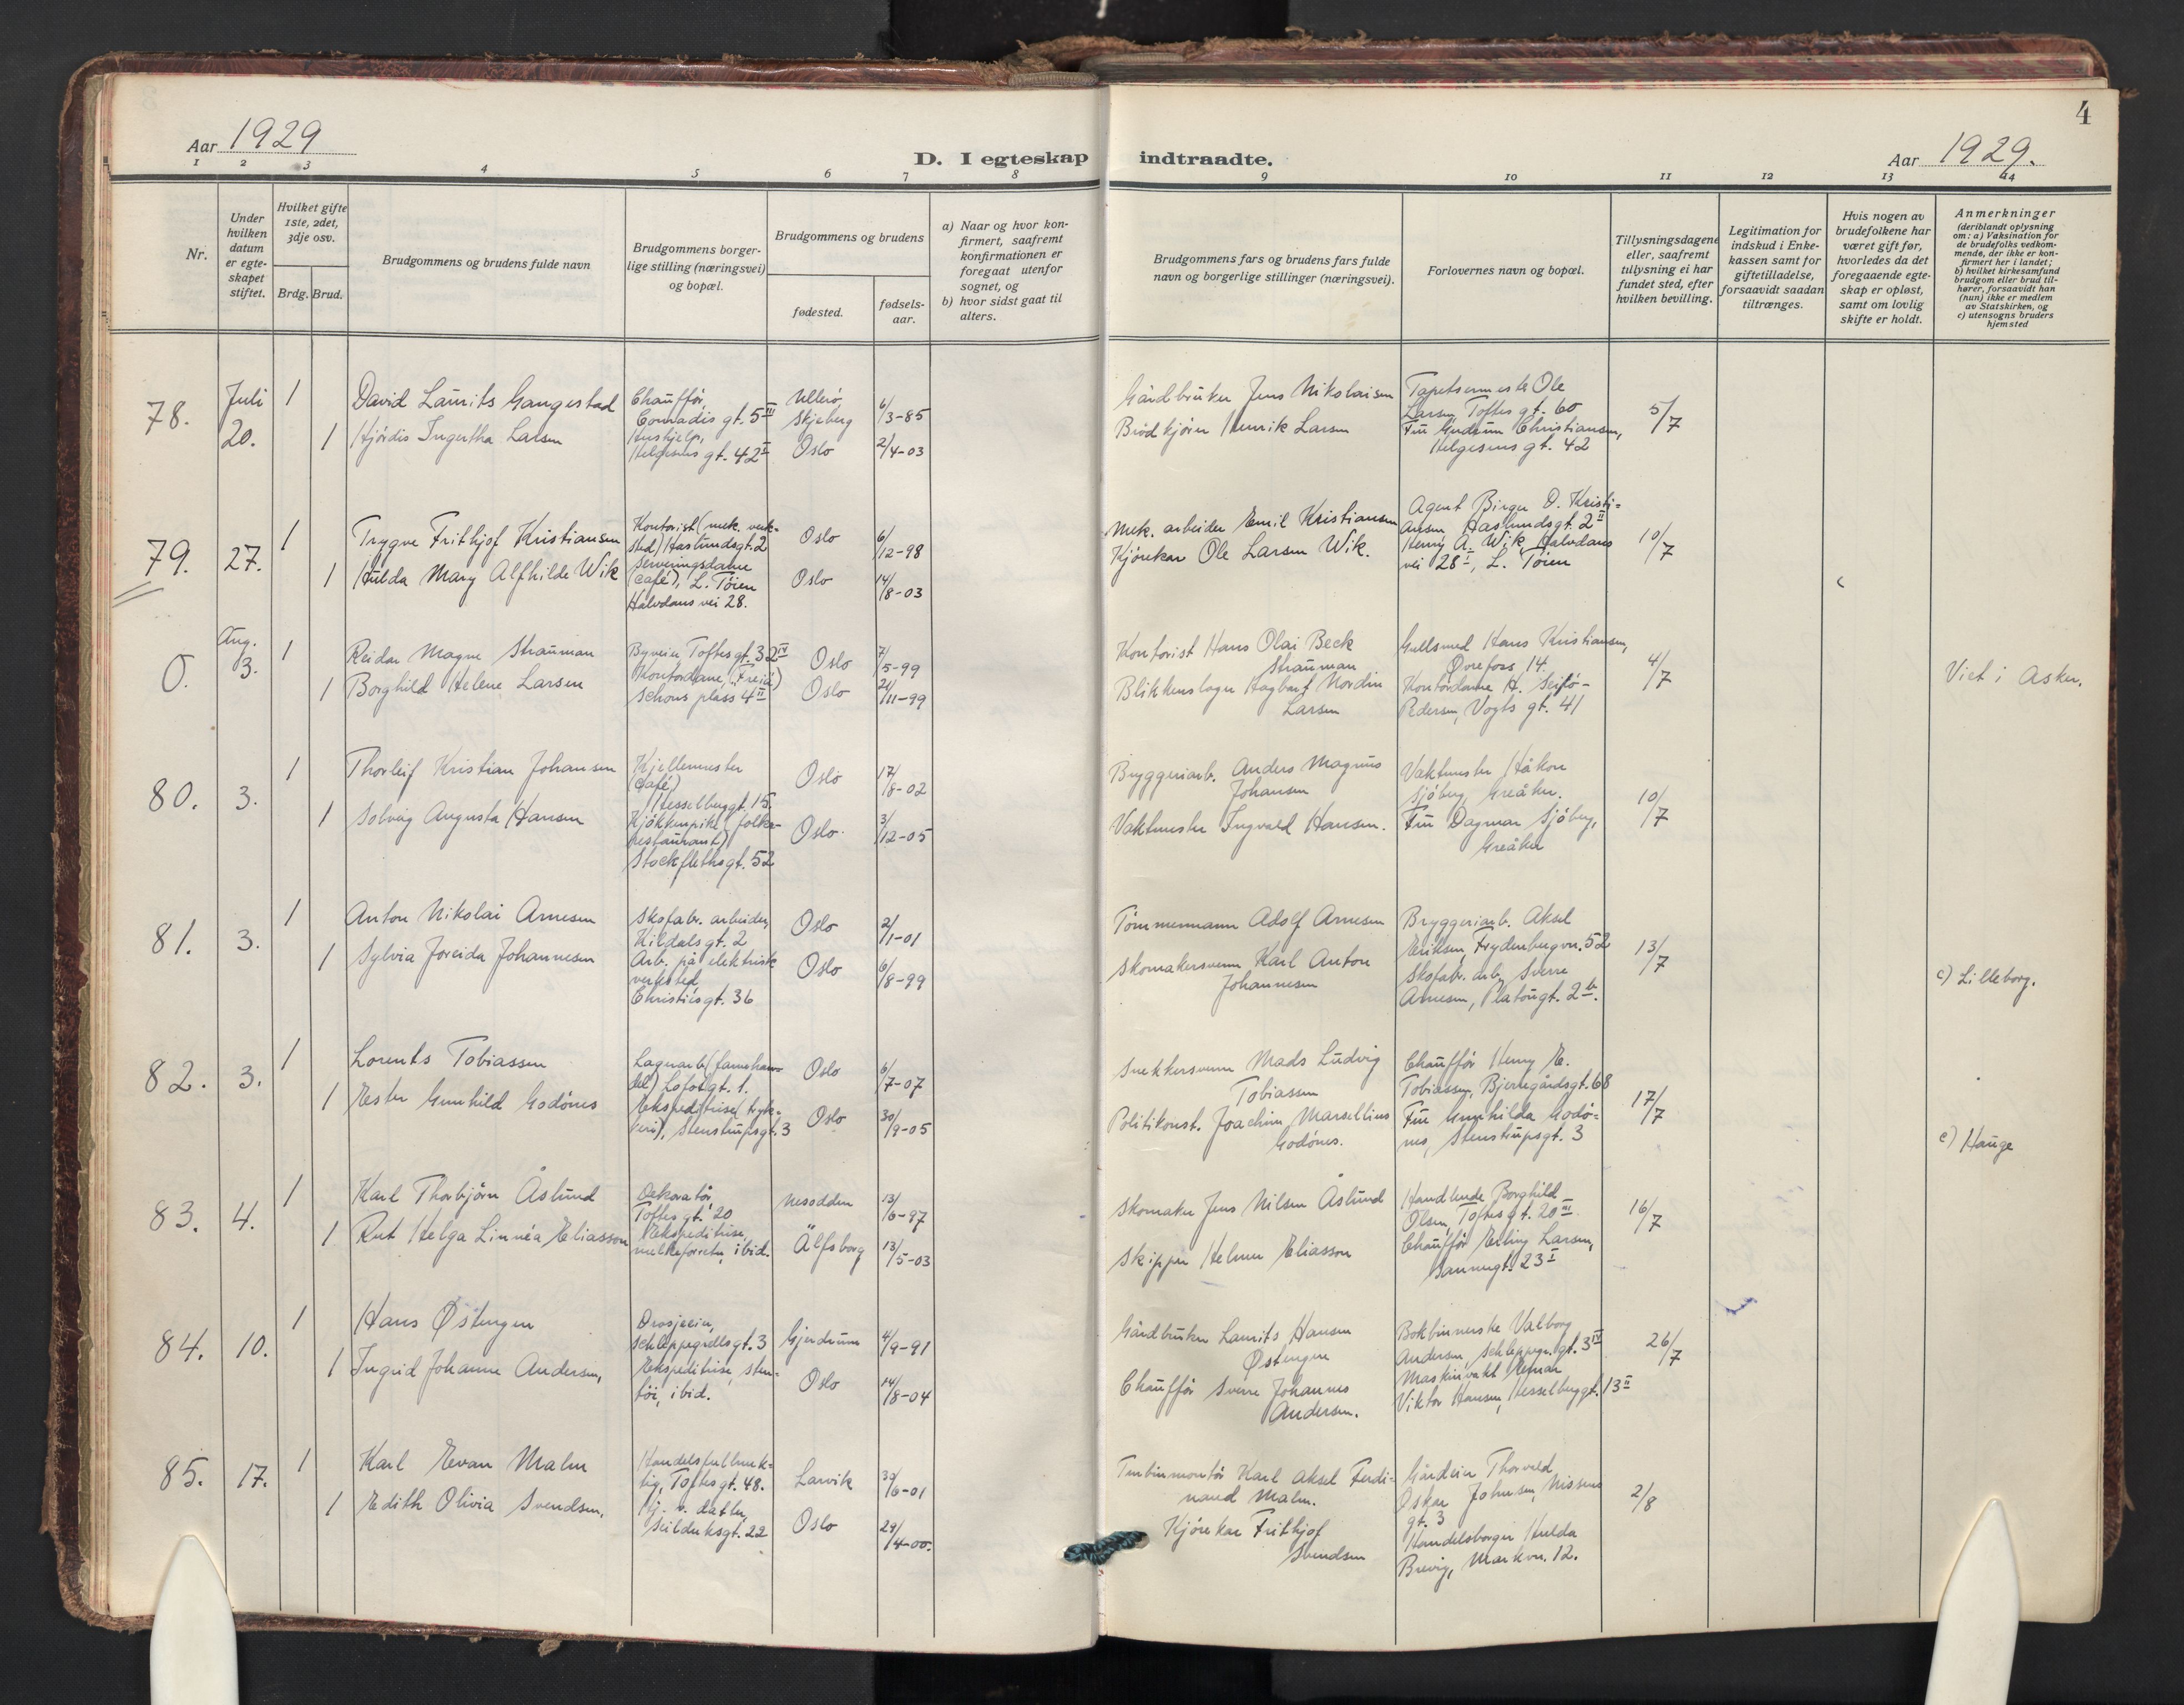 4
Aar 1929
D. I egteskap indtraadte.
Aar 1929.
1 2 3 4 5 6 7 8 9 10 11 12 13 14
Nr.
Under hvilken datum er egte-skapet stiftet.
Hvilket gifte 1ste, 2det, 3dje osv.
Brdg. Brud.
Brudgommens og brudens fulde navn
Brudgommens borger-lige stilling (næringsvei) og bopæl.
Brudgommens og brudens
fødested.
fødsels-aar.
a) Naar og hvor kon-firmert, saafremt konfirmationen er foregaat utenfor sognet, og
b) hvor sidst gaat til alters.
Brudgommens fars og brudens fars fulde navn og borgerlige stillinger (næringsvei).
Forlovernes navn og bopæl.
Tillysningsdagene eller, saafremt tillysning ei har fundet sted, efter hvilken bevilling.
Legitimation for indskud i Enke-kassen samt for giftetilladelse, forsaavidt saadan tiltrænges.
Hvis nogen av brudefolkene har været gift før, hvorledes da det foregaaende egte-skap er opløst, samt om lovlig skifte er holdt.
Anmerkninger (deriblandt oplysning om: a) Vaksination for de brudefolks vedkom-mende, der ikke er kon-firmert her i landet; b) hvilket kirkesamfund brudgom eller brud til-hører, forsaavidt han (hun) ikke er medlem av Statskirken, og c) utensogns bruders hjemsted
78. Juli 20.
1 David Laurits Gangestad
Chauffør, Conradis gt. 5 III
Ullerö, Skjeberg
6/3-85
Gårdbruker Jens Nikolaisen
Tapetsermester Ole
Larsen, Toftes gt. 60
5/7
1 Hjördis Ingertha Larsen
Hushjelp, Helgesens gt. 42 II
Oslo
2/4-03
Brödkjörer Henrik Larsen
Fru Gudrun Christiansen,
Helgesens gt. 42
79. 27.
1 Trygve Frithjof Kristiansen
Kontorist (mek. verk-
sted) Haslundsgt. 2
Oslo
6/12-98
Mek. arbeider Emil Kristiansen
Agent Birger O. Kristi-
ansen, Haslundsgt. 2 II
10/7
1 Hulda Mary Alfhilde Wik
Serveringsdame
(café), L. Töien
Halvdans vei 28.
Oslo
14/8-03
Kjörekar Ole Larsen Wik.
Henry A. Wik, Halvdans
vei 28 I, L. Töien
0. Aug. 3.
1 Reidar Magne Strauman
Byveier Toftes gt. 32 IV
Oslo
7/5-99
Kontorist Hans Olai Beck
Strauman
Gullsmed Hans Kristiansen,
Övrefoss 14
4/7
Viet i Asker.
1 Borghild Helene Larsen
Kontordame, (Freia)
Schous plass 4 II
Oslo
24/11-99
Blikkenslager Hagbart Nordin
Larsen
Pedersen, Vogts gt. 41
80. 3.
1 Thorleif Kristian Johansen
Kjellermester
(café)
Hesselberggt. 15.
Oslo
17/8-02
Bryggeriarb. Anders Magnus
Johansen
Vaktmester Håkon
Sjöberg, Greåker.
10/7
1 Solveig Augusta Hansen
Kjökkenpike (folke-
restaurant)
Stockflethsgt. 52
Oslo.
3/12-05
Vaktmester Ingvald Hansen.
Fru Dagmar Sjöberg,
Greåker
81. 3.
1 Anton Nikolai Arnesen
Skofabr. arbeider,
Kildals gt. 2
Oslo
2/1-01
Tömmermann Adolf Arnesen
Bryggeriarb. Aksel
Eriksen, Frydenbergvn. 52
13/7
1 Sylvia Joreida Johannesen
Arb. på elektrisk
verksted
Christiesgt. 36
Oslo
6/8-99
Skomakersvenn Karl Anton
Johannesen
Skofabr. arb. Sverre
Arnesen, Platougt. 2 b.
c) Lilleborg.
82. 3.
1 Lorents Tobiassen
Lofotgt. 1.
Oslo
6/7-07
Snekkersvenn Mads Ludvig
Tobiassen
Chauffør Henry E.
Tobiassen, Bjerregårdsgt. 68
17/7
1 Ester Gunhild Godönes
Ekspeditrise (tryk-
keri), Stenstrupsgt. 3
Oslo
30/9-05
Politikonst. Joachim Marsellius
Godönes.
Fru Gunhilda Godö-
nes, Stenstrupsgt. 3
c) Hauge
83. 4.
1 Karl Thorbjörn Åslund
Dekoratör
Toftes gt. 20
Nesodden
13/6-97
Skomaker Jens Nilsen Åslund
Handlende Borghild
Olsen, Toftes gt. 20 III
16/7
1 Rut Helga Linnéa Eliasson
Ekspeditrise,
melkeforretn., ibid.
Älfsborg
13/5-03
Skipper Helmer Eliasson
Chauffør Erling Larsen,
Sannergt. 23 I
84. 10.
1 Hans Östengen
Drosjeeier,
Schleppegrellsgt. 3
Gjerdrum
4/9-91
Gårdbruker Laurits Hansen
Östengen
Bokbinnerske Valborg
Andersen, Schleppegr. gt. 3 IV
26/7
1 Ingrid Johanne Andersen,
Ekspeditrise, sten-
töi, ibid.
Oslo
14/8-04
Chauffør Sverre Johannes
Andersen.
Maskinvakt Einar
Viktor Hansen, Hesselberggt. 13 II
85. 17.
1 Karl Evan Malm
Handelsfullmek-
tig, Toftes gt. 48.
Larvik
30/6-01
Turbinmontör Karl Aksel Ferdi-
nand Malm.
Gårdeier Thorvald
Oskar Johnsen, Nissens
gt. 3
2/8
1 Edith Olivia Svendsen,
Hj. v. datter,
Seilduksgt. 22
Oslo
29/4-00.
Kjörekar Frithjof
Svendsen
Handelsborger Hulda
Brevig, Markvn. 12.